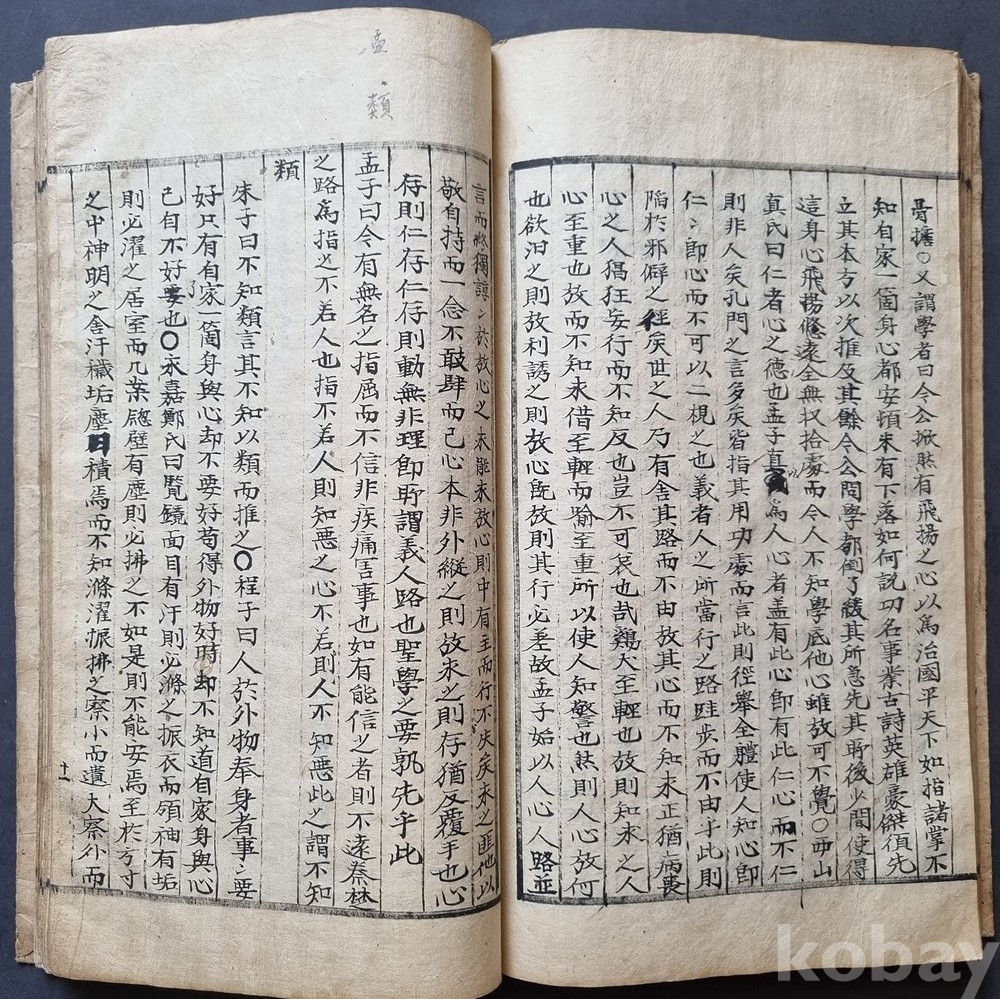 骨擔○又謂學者曰今公掀然有飛揚之心以爲治國平天下如指諸掌不
知自家一箇身心都安頓未有下落如何說功名事業古詩英雄豪傑須先
立其本方以次推及其餘今公問學都倒了緩其所急先其所後少間使得
這身心飛揚悠遠全無収拾處而今人不知學底他心雖放可不覺○西山
真氏曰仁者心之德也孟子直爲人心者盖有此心卽有此仁心而不仁
則非人矣孔門之言多矣皆指其用功處而言此則徑擧全體使人知心卽
仁〻卽心而不可以二視之也義者人之所當行之路跬步而不由于此則
陷於邪僻之徑矣世之人乃有舍其路而不由放其心而不知求正猶病喪
心之人猖狂妄行而不知反也豈不可哀也㦲鷄犬至輕也放則知求之人
心至重也放而不知求借至輕而喩至重所以使人知警也然則人心放何
也欲汨之則放利誘之則放心旣放則其行必差故孟子始以人心人路並
孟 類
言而終獨諄〻於放心之求能求放心則中有主而行不失矣求之匪他以
敬自持而一念不敢肆而已心本非外縱之則放求之則存猶反覆手也心
存則仁存仁存則動無非理卽所謂義人路也聖學之要孰先乎此
孟子曰今有無名之指屈而不信非疾痛害事也如有能信之者則不遠秦楚
之路爲指之不若人也指不若人則知惡之心不若則人不知惡此之謂不知
類
朱子曰不知類言其不知以類而推之○程子曰人於外物奉身者事〻要
好只有自家一箇身與心却不要好苟得外物好時却不知道自家身與心
已自不好要也○永嘉鄭氏曰覽鏡面目有汙則必滌之振衣而領袖有垢
則必濯之居室而几案窓壁有塵則必拂之不如是則不能安焉至於方寸
之中神明之舍汙穢垢塵日積焉而不知滌濯振拂之察小而遺大察外而
十一
kobay